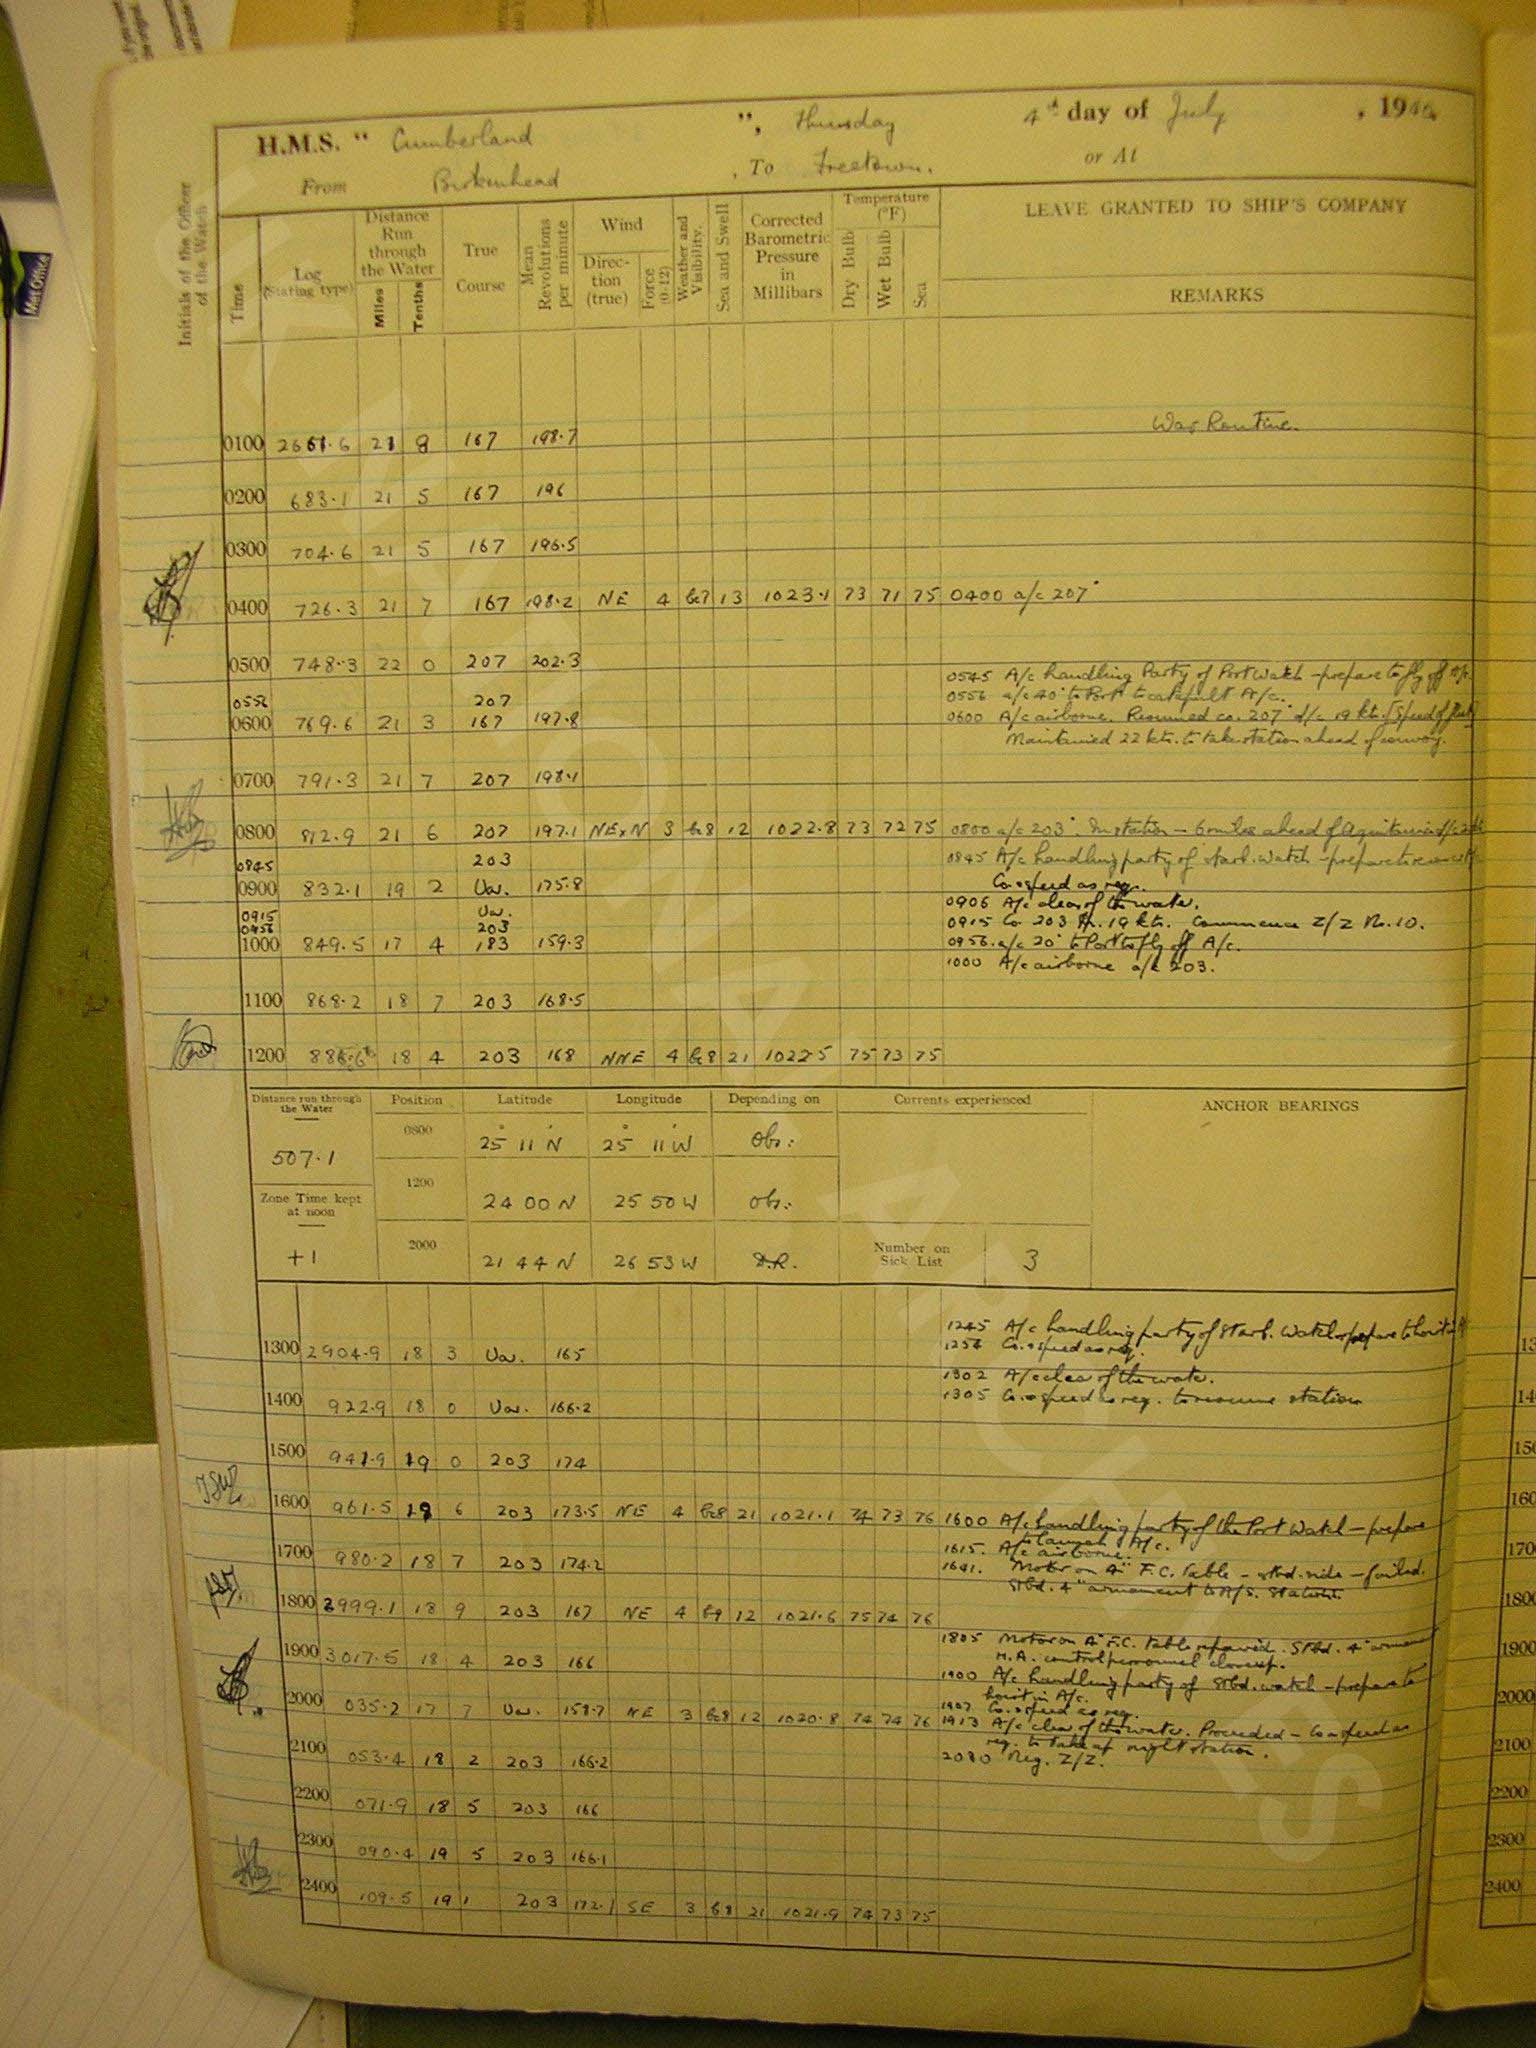 H.M.S. " Cumberland ", Thursday 4th day of July , 1940
From Birkenhead , To Freetown. or At
Initials of the Officer of the Watch
Time
Log (Stating type)
Distance Run through the Water
Miles Tenths
True Course
Mean Revolutions per minute
Wind
Direction (true)
Force (0-12)
Weather and Visibility.
Sea and Swell
Corrected Barometric Pressure in Millibars
Temperature (°F)
Dry Bulb Wet Bulb Sea
LEAVE GRANTED TO SHIP'S COMPANY
REMARKS
War Routine.
0100 2661.6 21 8 167 198.7
0200 683.1 21 5 167 196
0300 704.6 21 5 167 196.5
0400 726.3 21 7 167 198.2 NE 4 bc7 13 1023.1 73 71 75 0400 a/c 207°
0500 748.3 22 0 207 202.3
0545 A/c handling Party of Port Watch - prepare to fly off A/c.
0556 207 0556 a/c 40° to Port to catapult A/c.
0600 769.6 21 3 167 197.8 0600 A/c airborne. Resumed co. 207° 19 kts.
Maintained 22 kts. to take station ahead of convoy.
0700 791.3 21 7 207 198.1
0800 812.9 21 6 207 197.1 NE x N 3 bc8 12 1022.8 73 72 75 0800 a/c 203°. In station - 6 miles ahead of Aquitania
0845 203 0845 A/c handling party of starb. watch - prepare to recover
0900 832.1 19 2 Var. 175.8 Co. & speed as req.
0906 A/c clear of the water.
0915 Var. 0915 Co 203 19 kts. Commence Z/Z No. 10.
0956 203
1000 849.5 17 4 183 159.3 0956. a/c 20° to Port to fly off A/c.
1000 A/c airborne a/c 203.
1100 868.2 18 7 203 168.5
1200 886.6 18 4 203 168 NNE 4 bc8 21 1022.5 75 73 75
Distance run through the Water
507.1
Zone Time kept at noon
+1
Position Latitude Longitude Depending on Currents experienced ANCHOR BEARINGS
0800 25° 11' N 25° 11' W Obs:
1200 24 00 N 25 50 W Obs:
2000 21 44 N 26 53 W D.R.
Number on Sick List 3
1245 A/c handling party of Starb. Watch prepare to hoist in A/c
1300 2904.9 18 3 Var. 165 1254 Co. & speed as req.
1302 A/c clear of the water.
1400 922.9 18 0 Var. 166.2 1305 Co. & speed as req. to resume station
1500 941.9 19 0 203 174
1600 961.5 19 6 203 173.5 NE 4 bc8 21 1021.1 74 73 76 1600 A/c handling party of the Port Watch - prepare
to launch A/c.
1615. A/c airborne.
1700 980.2 18 7 203 174.2 1641. Motor on 4" F.C. Table - stbd. side - failed.
Stbd. 4" armament to A/S. Stations.
1800 2999.1 18 9 203 167 NE 4 b9 12 1021.6 75 74 76
1805 Motor on 4" F.C. table repaired. Stbd. 4" armament
H.A. control personnel closeup.
1900 3017.5 18 4 203 166 1900 A/c handling party of Stbd. watch - prepare to
hoist in A/c.
1907 Co. & speed as req.
2000 035.2 17 7 Var. 159.7 NE 3 bc8 12 1020.8 74 74 76 1913 A/c clear of the water. Proceeded - Co & speed as
req. to take up night station.
2100 053.4 18 2 203 166.2 2030 Neg. Z/Z.
2200 071.9 18 5 203 166
2300 090.4 19 5 203 166.1
2400 109.5 19 1 203 172.1 SE 3 b8 21 1021.9 74 73 75
Met Office